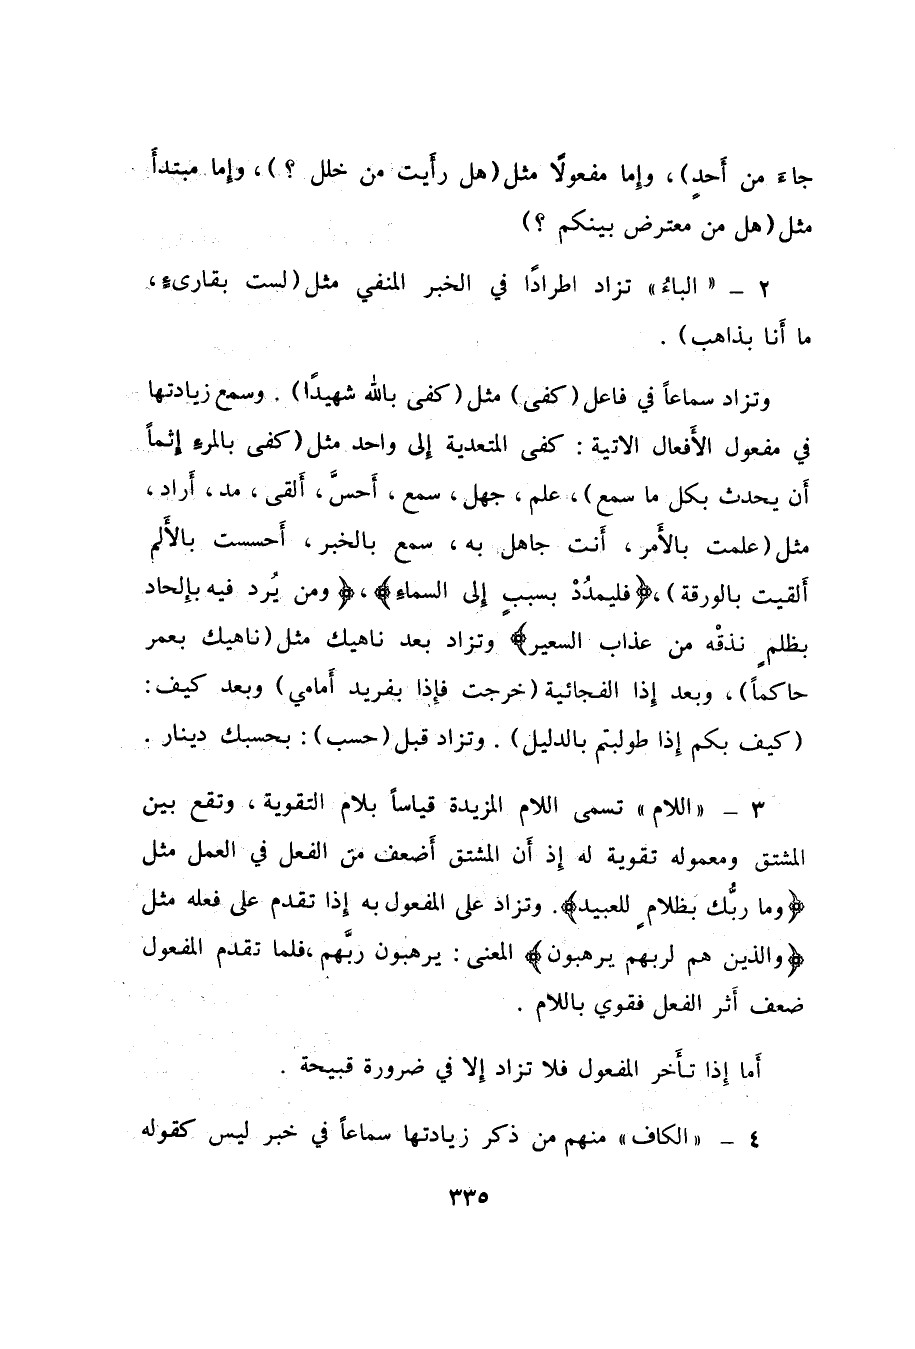 جاءَ من أَحدٍ)، وإما مفعولًا مثل (هل رأَيت من خلل ؟)، وإما مبتدأَ
مثل (هل من معترض بينكم ؟)
٢ – « الباءُ» تزاد اطرادًا في الخبر المنفي مثل (لست بقارىءٍ،
ما أَنا بذاهب) .
وتزاد سماعاً في فاعل (كفى) مثل (كفى بالله شهيدًا) . وسمع زيادتها
في مفعول الأَفعال الاتية : كفى المتعدية إلى واحد مثل (كفى بالمرءِ إثماً
أَن يحدث بكل ما سمع)، علم ، جهل ، سمع ، أَحسَّ ، أَلقى ، مد ، أَراد ،
مثل (علمت بالأَمر ، أَنت جاهل به ، سمع بالخبر ، أَحسست بالأَلم
أَلقيت بالورقة) ،﴿فليمدُدْ بسببٍ إلى السماءِ﴾ ، ﴿ومن يُرد فيه بإلحاد
بظلمٍ نذقْه من عذاب السعير﴾ وتزاد بعد ناهيك مثل (ناهيك بعمر
حاكماً) ، وبعد إذا الفجائية (خرجت فإذا بفريد أَمامي) وبعد كيف :
(كيف بكم إذا طولبتم بالدليل) . وتزاد قبل (حسب) : بحسبك دينار .
٣ – «اللام» تسمى اللام المزيدة قياساً بلام التقوية ، وتقع بين
المشتق ومعموله تقوية له إذ أَن المشتق أَضعف من الفعل في العمل مثل
﴿وما ربُّك بظلامٍ للعبيد﴾. وتزاد على المفعول به إذا تقدم على فعله مثل
﴿والذين هم لربهم يرهبون﴾ المعنى : يرهبون ربَّهم ،فلما تقدم المفعول
ضعف أَثر الفعل فقوي باللام .
أَما إذا تأَخر المفعول فلا تزاد إلا في ضرورة قبيحة .
٤ – «الكاف» منهم من ذكر زيادتها سماعاً في خبر ليس كقوله
٣٣٥